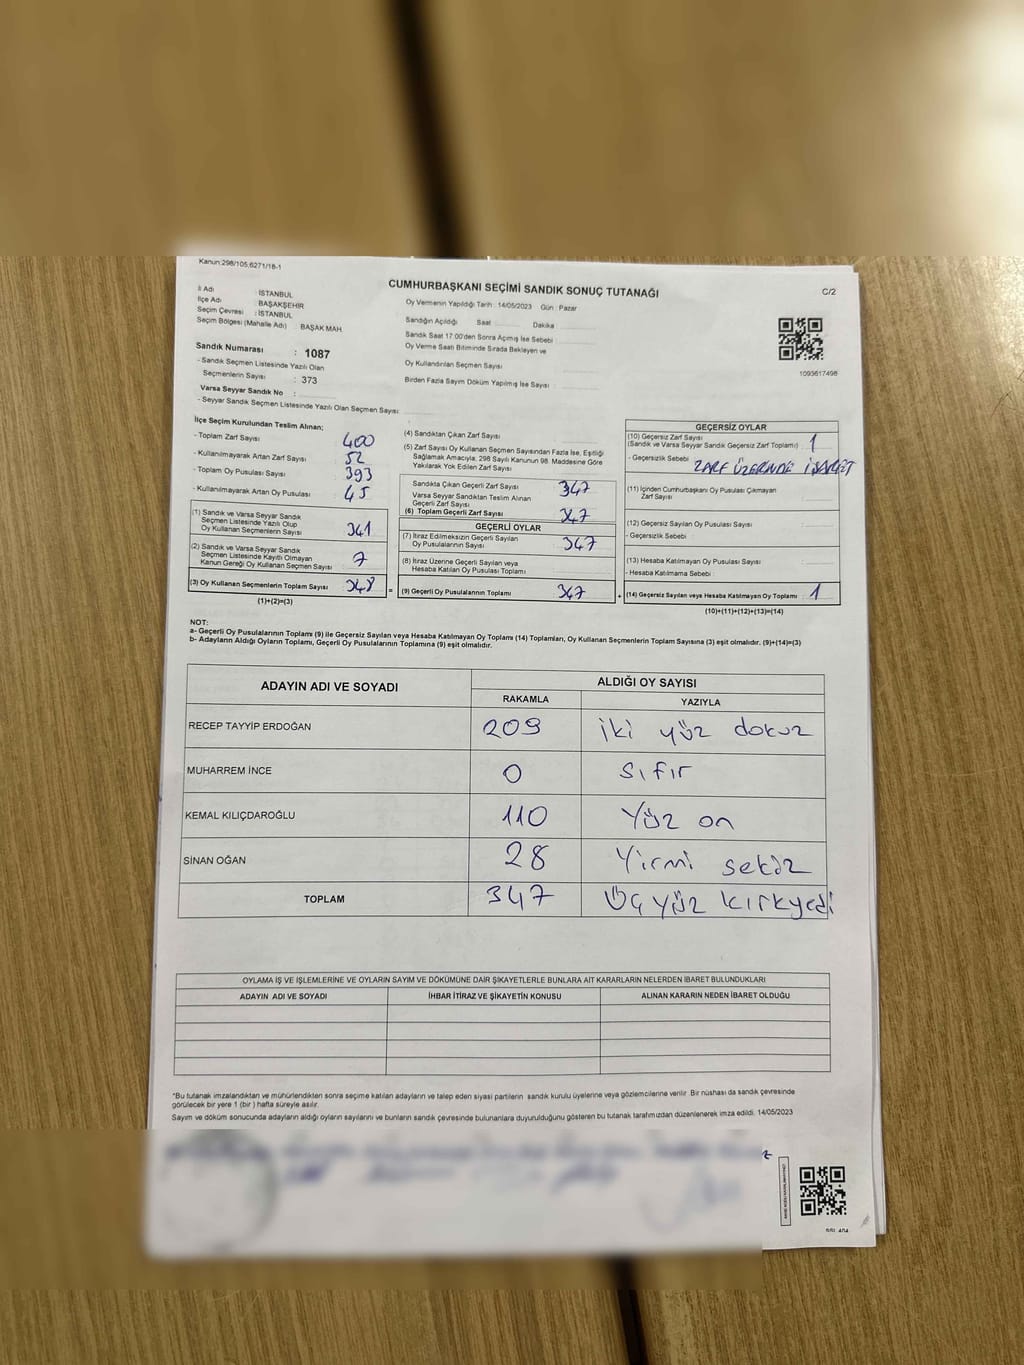 Kanun:298/105;6271/18-1
CUMHURBAŞKANI SEÇİMİ SANDIK SONUÇ TUTANAĞI
C/2
İl Adı : İSTANBUL
İlçe Adı : BAŞAKŞEHİR
Seçim Çevresi : İSTANBUL
Seçim Bölgesi (Mahalle Adı) : BAŞAK MAH.
Oy Vermenin Yapıldığı Tarih : 14/05/2023 Gün : Pazar
Sandığın Açıldığı Saat Dakika
Sandık Saat 17:00'den Sonra Açılmış İse Sebebi
Oy Verme Saati Bitiminde Sırada Bekleyen ve
Oy Kullandırılan Seçmen Sayısı
Birden Fazla Sayım Döküm Yapılmış İse Sayısı :
1093617498
Sandık Numarası : 1087
- Sandık Seçmen Listesinde Yazılı Olan
Seçmenlerin Sayısı : 373
Varsa Seyyar Sandık No :
- Seyyar Sandık Seçmen Listesinde Yazılı Olan Seçmen Sayısı:
İlçe Seçim Kurulundan Teslim Alınan;
- Toplam Zarf Sayısı 400
- Kullanılmayarak Artan Zarf Sayısı 52
- Toplam Oy Pusulası Sayısı 393
- Kullanılmayarak Artan Oy Pusulası 45
(1) Sandık ve Varsa Seyyar Sandık
Seçmen Listesinde Yazılı Olup
Oy Kullanan Seçmenlerin Sayısı 341
(2) Sandık ve Varsa Seyyar Sandık
Seçmen Listesinde Kayıtlı Olmayan
Kanun Gereği Oy Kullanan Seçmen Sayısı 7
(3) Oy Kullanan Seçmenlerin Toplam Sayısı 348
(1)+(2)=(3)
=
(4) Sandıktan Çıkan Zarf Sayısı
(5) Zarf Sayısı Oy Kullanan Seçmen Sayısından Fazla İse, Eşitliği
Sağlamak Amacıyla; 298 Sayılı Kanunun 98. Maddesine Göre
Yakılarak Yok Edilen Zarf Sayısı
Sandıkta Çıkan Geçerli Zarf Sayısı 347
Varsa Seyyar Sandıktan Teslim Alınan
Geçerli Zarf Sayısı
(6) Toplam Geçerli Zarf Sayısı 347
GEÇERLİ OYLAR
(7) İtiraz Edilmeksizin Geçerli Sayılan
Oy Pusulalarının Sayısı 347
(8) İtiraz Üzerine Geçerli Sayılan veya
Hesaba Katılan Oy Pusulası Toplamı
(9) Geçerli Oy Pusulalarının Toplamı 347
+
GEÇERSİZ OYLAR
(10) Geçersiz Zarf Sayısı
(Sandık ve Varsa Seyyar Sandık Geçersiz Zarf Toplamı) 1
- Geçersizlik Sebebi ZARF ÜZERİNDE İŞARET
(11) İçinden Cumhurbaşkanı Oy Pusulası Çıkmayan
Zarf Sayısı
(12) Geçersiz Sayılan Oy Pusulası Sayısı
- Geçersizlik Sebebi
(13) Hesaba Katılmayan Oy Pusulası Sayısı
- Hesaba Katılmama Sebebi
(14) Geçersiz Sayılan veya Hesaba Katılmayan Oy Toplamı 1
(10)+(11)+(12)+(13)=(14)
NOT:
a- Geçerli Oy Pusulalarının Toplamı (9) ile Geçersiz Sayılan veya Hesaba Katılmayan Oy Toplamı (14) Toplamları, Oy Kullanan Seçmenlerin Toplam Sayısına (3) eşit olmalıdır. (9)+(14)=(3)
b- Adayların Aldığı Oyların Toplamı, Geçerli Oy Pusulalarının Toplamına (9) eşit olmalıdır.
ADAYIN ADI VE SOYADI
ALDIĞI OY SAYISI
RAKAMLA YAZIYLA
RECEP TAYYİP ERDOĞAN 209 iki yüz dokuz
MUHARREM İNCE 0 sıfır
KEMAL KILIÇDAROĞLU 110 Yüz on
SİNAN OĞAN 28 Yirmi sekiz
TOPLAM 347 Üç yüz kırkyedi
OYLAMA İŞ VE İŞLEMLERİNE VE OYLARIN SAYIM VE DÖKÜMÜNE DAİR ŞİKAYETLERLE BUNLARA AİT KARARLARIN NELERDEN İBARET BULUNDUKLARI
ADAYIN ADI VE SOYADI İHBAR İTİRAZ VE ŞİKAYETİN KONUSU ALINAN KARARIN NEDEN İBARET OLDUĞU
*Bu tutanak imzalandıktan ve mühürlendikten sonra seçime katılan adayların ve talep eden siyasi partilerin sandık kurulu üyelerine veya gözlemcilerine verilir. Bir nüshası da sandık çevresinde
görülecek bir yere 1 (bir ) hafta süreyle asılır.
Sayım ve döküm sonucunda adayların aldığı oyların sayılarını ve bunların sandık çevresinde bulunanlara duyurulduğunu gösteren bu tutanak tarafımızdan düzenlenerek imza edildi. 14/05/2023